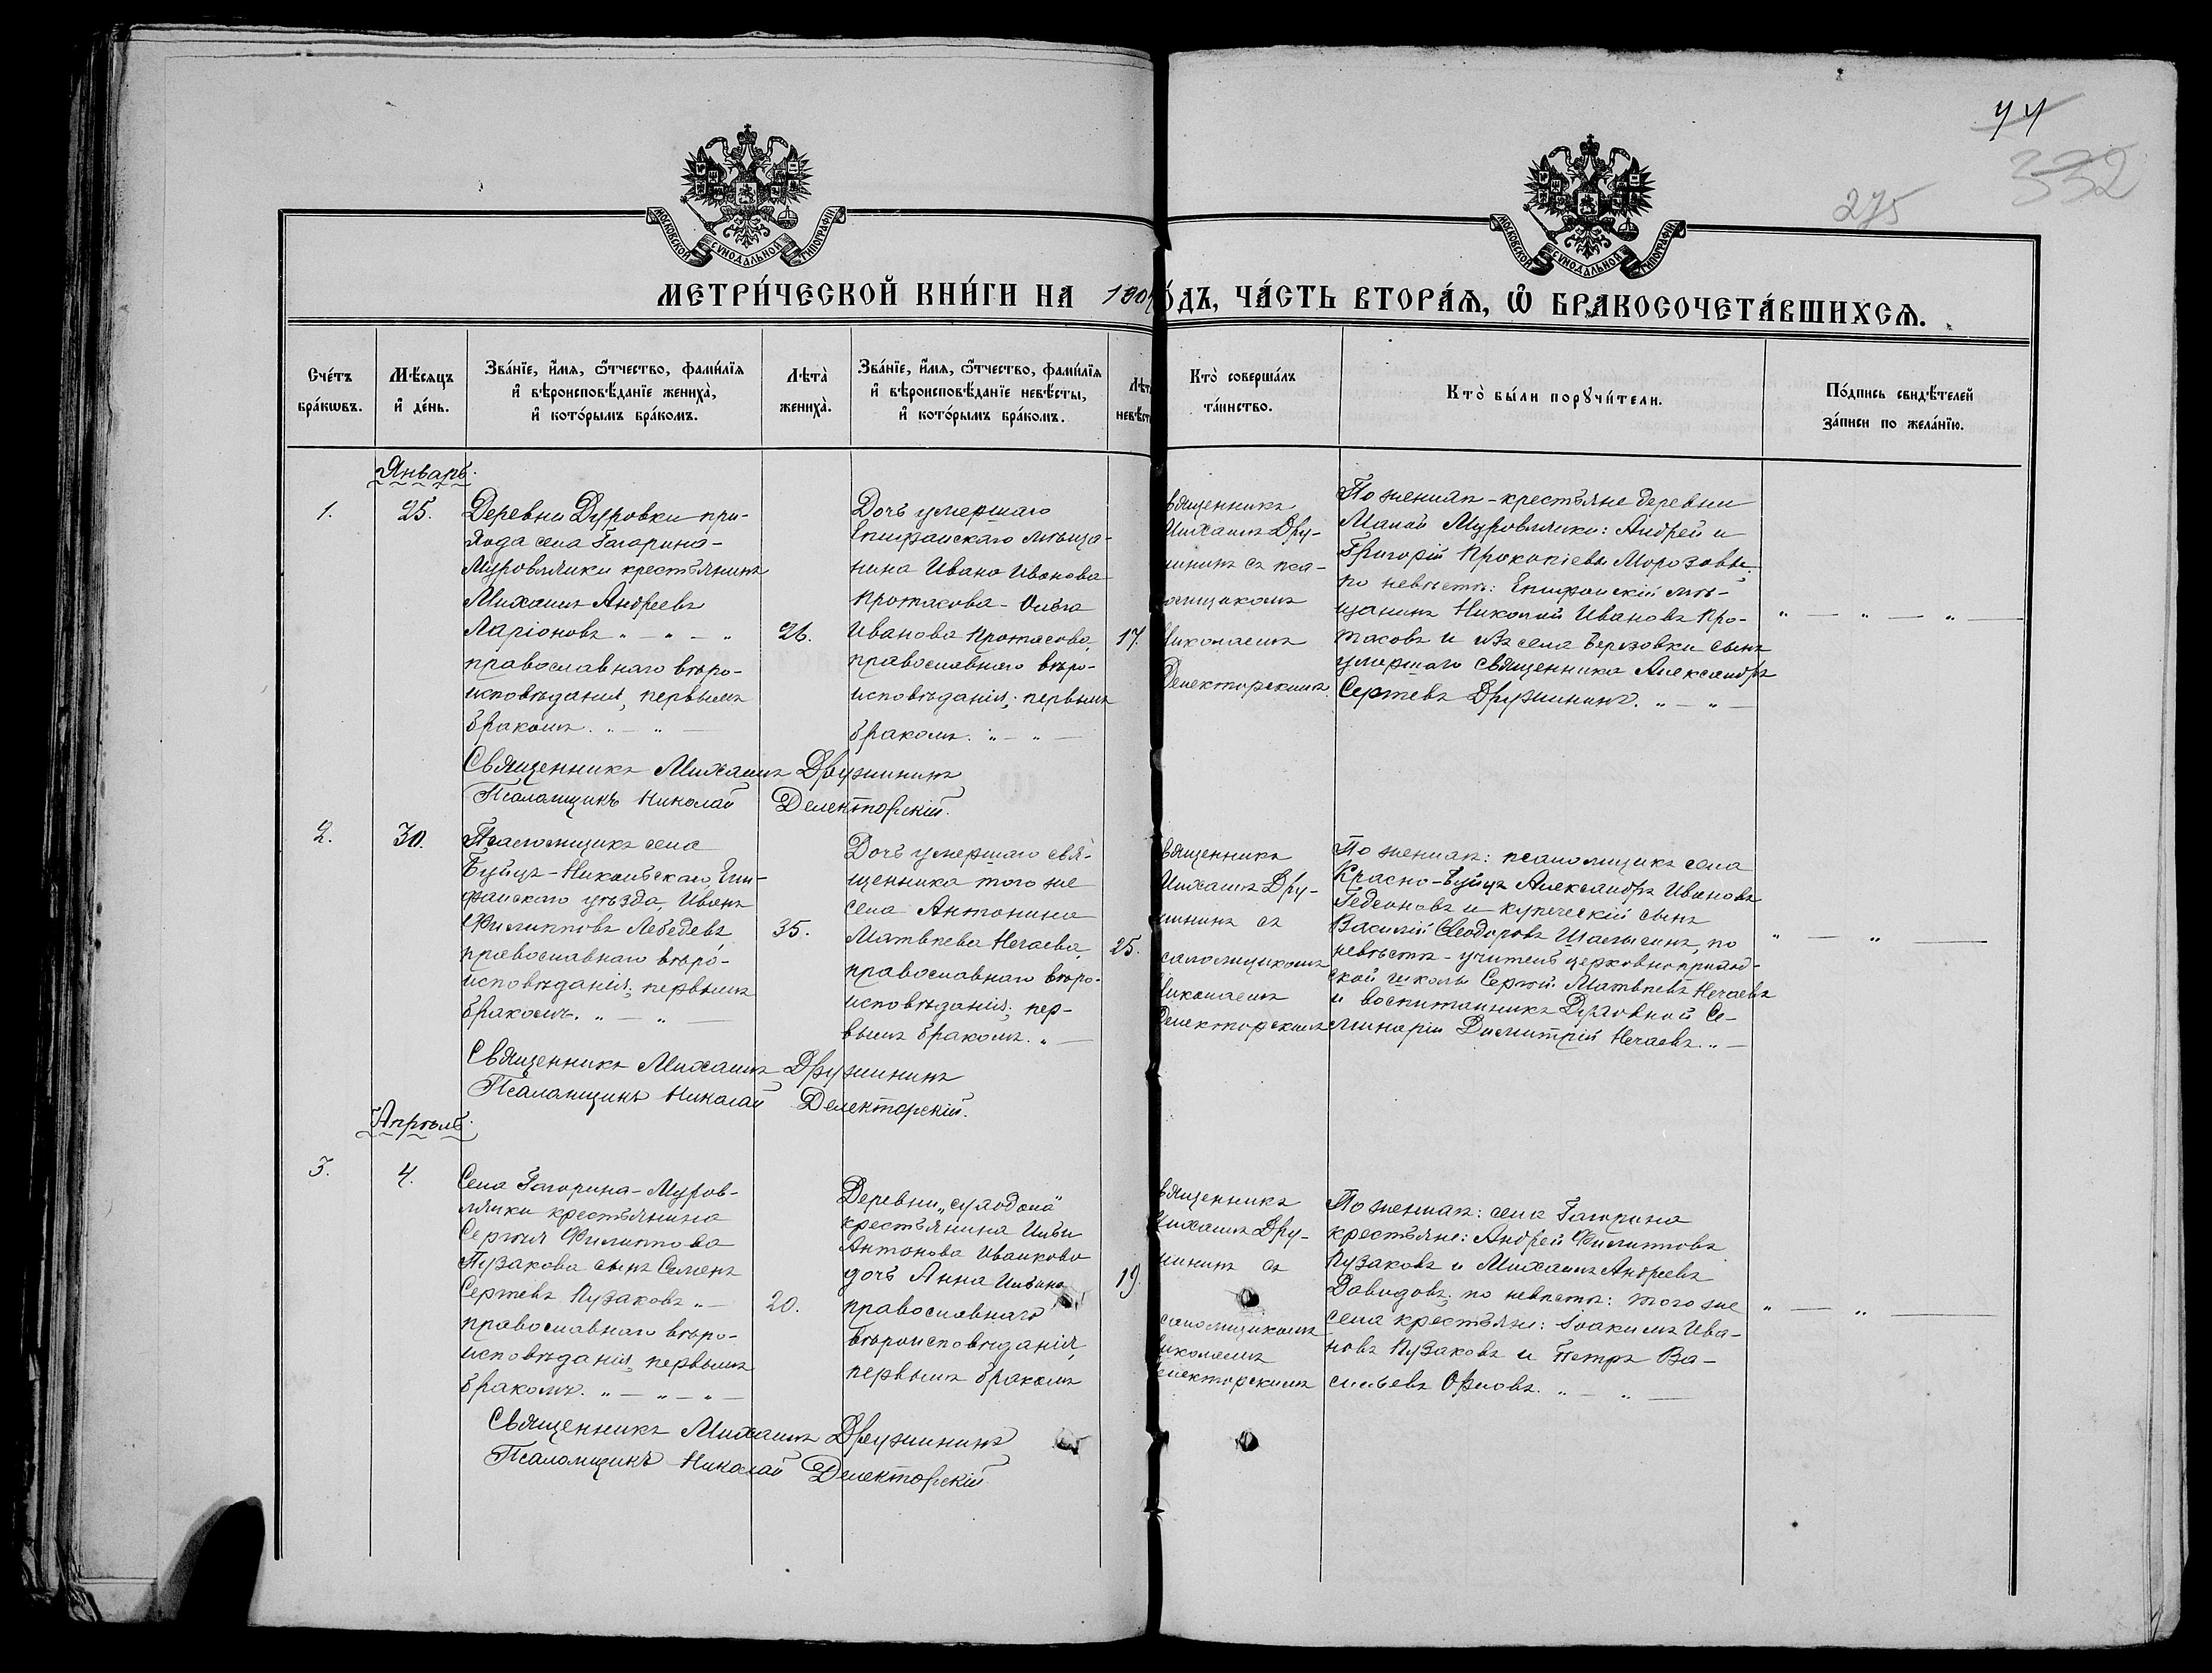 44
332
275
МОСКОВСКОЙ СѴНОДАЛЬНОЙ ТИПОГРАФІИ
МОСКОВСКОЙ СѴНОДАЛЬНОЙ ТИПОГРАФІИ
МЕТРИ́ЧЕСКОЙ КНИ́ГИ НА 190 О́ДЪ, ЧА́СТЬ ВТОРА́Ѧ, Ѡ҆ БРАКОСОЧЕТА́ВШИХСѦ.
Сче́тъ
бра́кѡвъ.
Мѣ́сѧцъ
и҆ де́нь.
Зва́нїе, и҆́мѧ, ѻ҆́тчество, фами́лїѧ
и҆ вѣроисповѣ́данїе жениха̀,
и҆ кото́рымъ бра́комъ.
Лѣта̀
жениха̀.
Зва́нїе, и҆́мѧ, ѻ҆́тчество, фами́лїѧ
и҆ вѣроисповѣ́данїе невѣ́сты,
и҆ кото́рымъ бра́комъ.
Лѣт
невѣст
Кто̀ соверша́лъ
та́инство.
Кто̀ бы́ли порꙋчи́тели.
По́дпись свидѣ́телей
за́писи по жела́нїю.
Январь.
1.
25.
Деревни Дуровки при-
хода села Гагарина-
Муровлянки крестьянинъ
Михаилъ Андреевъ
Ларіоновъ „ — „ — „
православнаго вѣро-
исповѣданія, первымъ
бракомъ. „ — „ —
26.
Дочь умершаго
Епифанскаго мѣща-
нина Ивана Иванова
Протасова - Ольга
Иванова Протасова,
православнаго вѣро-
исповѣданія; первымъ
бракомъ. „ — „ —
17.
вященникъ
Михаилъ Дру-
жининъ съ пса-
ломщикомъ
Николаемъ
Делекторскимъ.
По женихѣ - крестьяне деревни
Малой Муровлянки: Андрей и
Григорій Прокопіевы Морозовы;
по невѣстѣ: Епифанскій мѣ-
щанинъ Николай Ивановъ Про-
тасовъ и изъ села Березовки сынъ
умершаго священника Александръ
Сергѣевъ Дружининъ. „ — „ —
„ — „ — „ —
Священникъ Михаилъ Дружининъ
Псаломщикъ Николай Делекторскій.
2.
30.
Псаломщикъ села
Буйцъ-Никольскаго, Епи-
фанскаго уѣзда, Иванъ
Филипповъ Лебедевъ,
православнаго вѣро-
исповѣданія; первымъ
бракомъ. „ — „ —
35.
Дочь умершаго свя-
щенника того же
села Антонина
Матвѣева Нечаева,
православнаго вѣро-
исповѣданія; пер-
вымъ бракомъ. „ —
25.
вященникъ
Михаилъ Дру-
жининъ съ
саломщикомъ
Николаемъ
Делекторскимъ
По женихѣ: псаломщикъ села
Красно-Буйцъ Александръ Ивановъ
Гедеоновъ и купеческій сынъ
Василій Ѳеодоровъ, по
невѣстѣ - учитель церковноприход-
ской школы Сергѣй Матвѣевъ Нечаевъ
и воспитанникъ Духовной Се-
минаріи Димитрій Нечаевъ. „ —
„ — „ —
Священникъ Михаилъ Дружининъ
Псаломщикъ Николай Делекторскій.
Апрѣль.
3.
4.
Села Гагарина-Муров-
лянки крестьянина
Сергія Филиппова
Пузакова сынъ Семенъ
Сергѣевъ Пузаковъ „ —
православнаго вѣро-
исповѣданія, первымъ
бракомъ. „ — „ — „ —
20.
Деревни
крестьянина Ильи
Антонова Иванкова
дочь Анна Ильина
православнаго
вѣроисповѣданія,
первымъ бракомъ
19.
вященникъ
Михаилъ Дру-
жининъ съ
саломщикомъ
иколаемъ
електорскимъ
По женихѣ: села Гагарина
крестьяне: Андрей Филипповъ
Пузаковъ и Михаилъ Андреевъ
Давидовъ; по невѣстѣ: того же
села крестьяне: Іоакимъ Ива-
новъ Пузаковъ и Петръ Ва-
сильевъ Орловъ. „ — „ —
„ — „ —
Священникъ Михаилъ Дружининъ
Псаломщикъ Николай Делекторскій